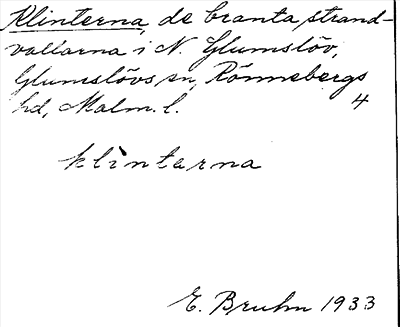 Klinterna, de branta strand-
vallarna i N. Glumslöv,
Glumslövs sn, Rönnebergs
hd, Malm. l. 4
klìntarna
E. Bruhn 1933